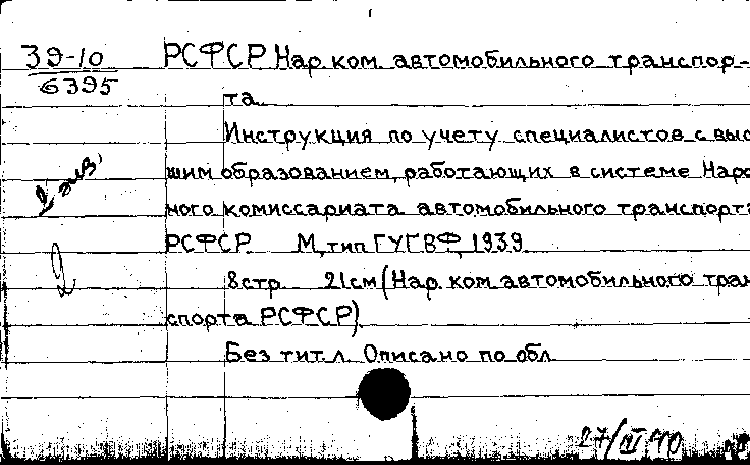 39-10
6395
РСФСР Нар. ком. автомобильного транспор-
та.
Инструкция по учету специалистов с выс
шим образованием, работающих в системе Наро
2 экз.
ного комиссариата автомобильного транспорта
РСФСР. М, тип ГУГВФ, 1939.
2
8 стр. 21 см (Нар. ком. автомобильного тран
спорта РСФСР)
Без тит. л. Описано по обл.
27/IV 40